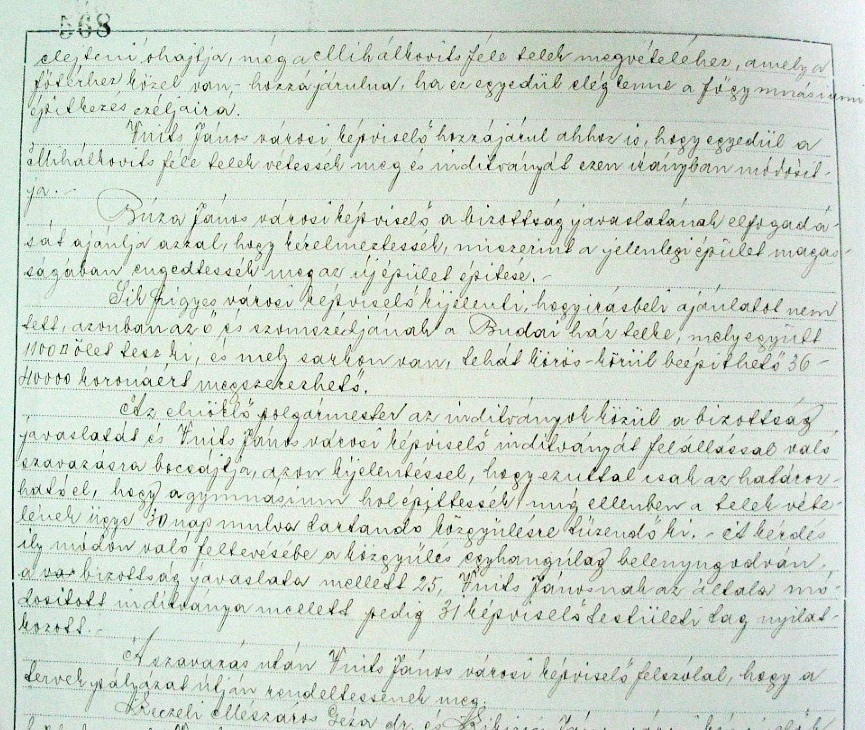 568
elejteni óhajtja, még a Mihálkovits féle telek megvételéhez, amely a
főtérhez közel van,- hozzájárulna, ha ez egyedül elég lenne a főgymnásiumi
épitkezés czéljaira.
Vnits János városi képviselő hozzájárul ahhoz is, hogy egyedül a
Mihálkovits féle telek vétessék meg és inditványát ezen irányban módosit-
ja. -
Búza János városi képviselő a bizottság javaslatának elfogadá-
sát ajánlja azzal, hogy kérelmeztessék, miszerint a jelenlegi épület magas-
ságában engedtessék meg az új épület épitése. -
Sik Frigyes városi képviselő kijelenti, hogy irásbeli ajánlatot nem
tett, azonban az ő és szomszédjának a Budai ház telke, mely együtt
1100 □ ölet tesz ki, és mely sarkon van, tehát körös-körül beépíthető 36-
40000 koronáért megszerezhető.
Az elnöklő polgármester az inditványok közül a bizottság
javaslatát és Vnits János városi képviselő inditványát felállással való
szavazásra bocsájtja, azon kijelentéssel, hogy ezuttal csak az határoz-
ható el, hogy a gymnasium hol épittessék, míg ellenben a telek véte-
lének ügye 30 nap mulva tartandó közgyűlésre tüzendő ki. - A kérdés
ily módon való feltevésébe a közgyűlés egyhangúlag belenyugodván,
a bizottság javaslata mellett 25, Vnits Jánosnak az általa mó-
dositott inditványa mellett pedig 31 képviselőtestületi tag nyilat-
kozott. -
A szavazás után Vnits János városi képviselő felszólal, hogy a
tervek pályázat útján rendeltessenek meg.
Reczeli Mészáros Géza dr. és János városi képviselők